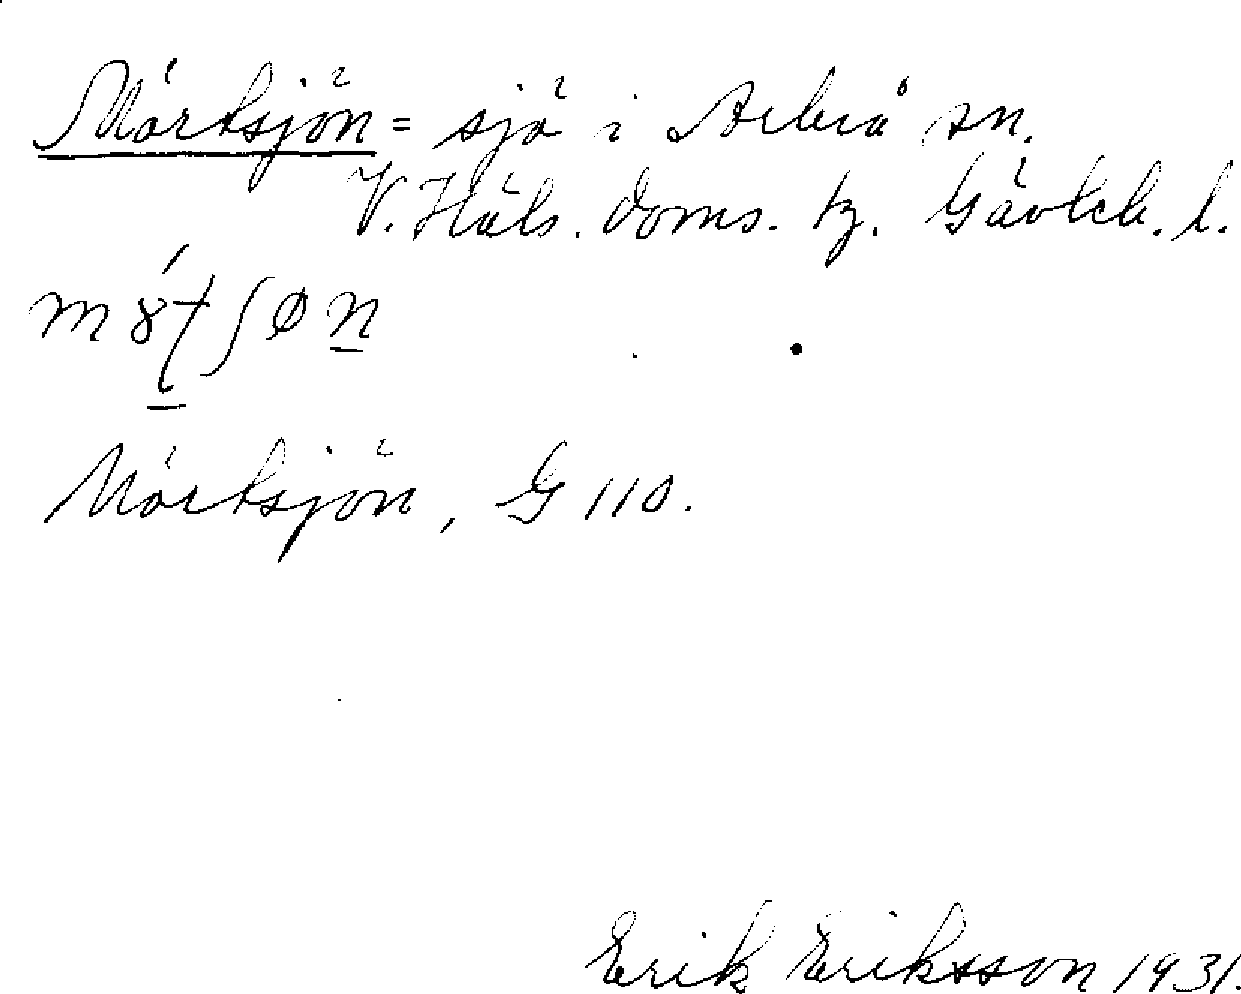 Mörtsjön = sjö i Arbrå sn.
V. Häls. doms. tg. Gävleb. l.
Mörtsjön, G 110.
Erik Eriksson 1931.